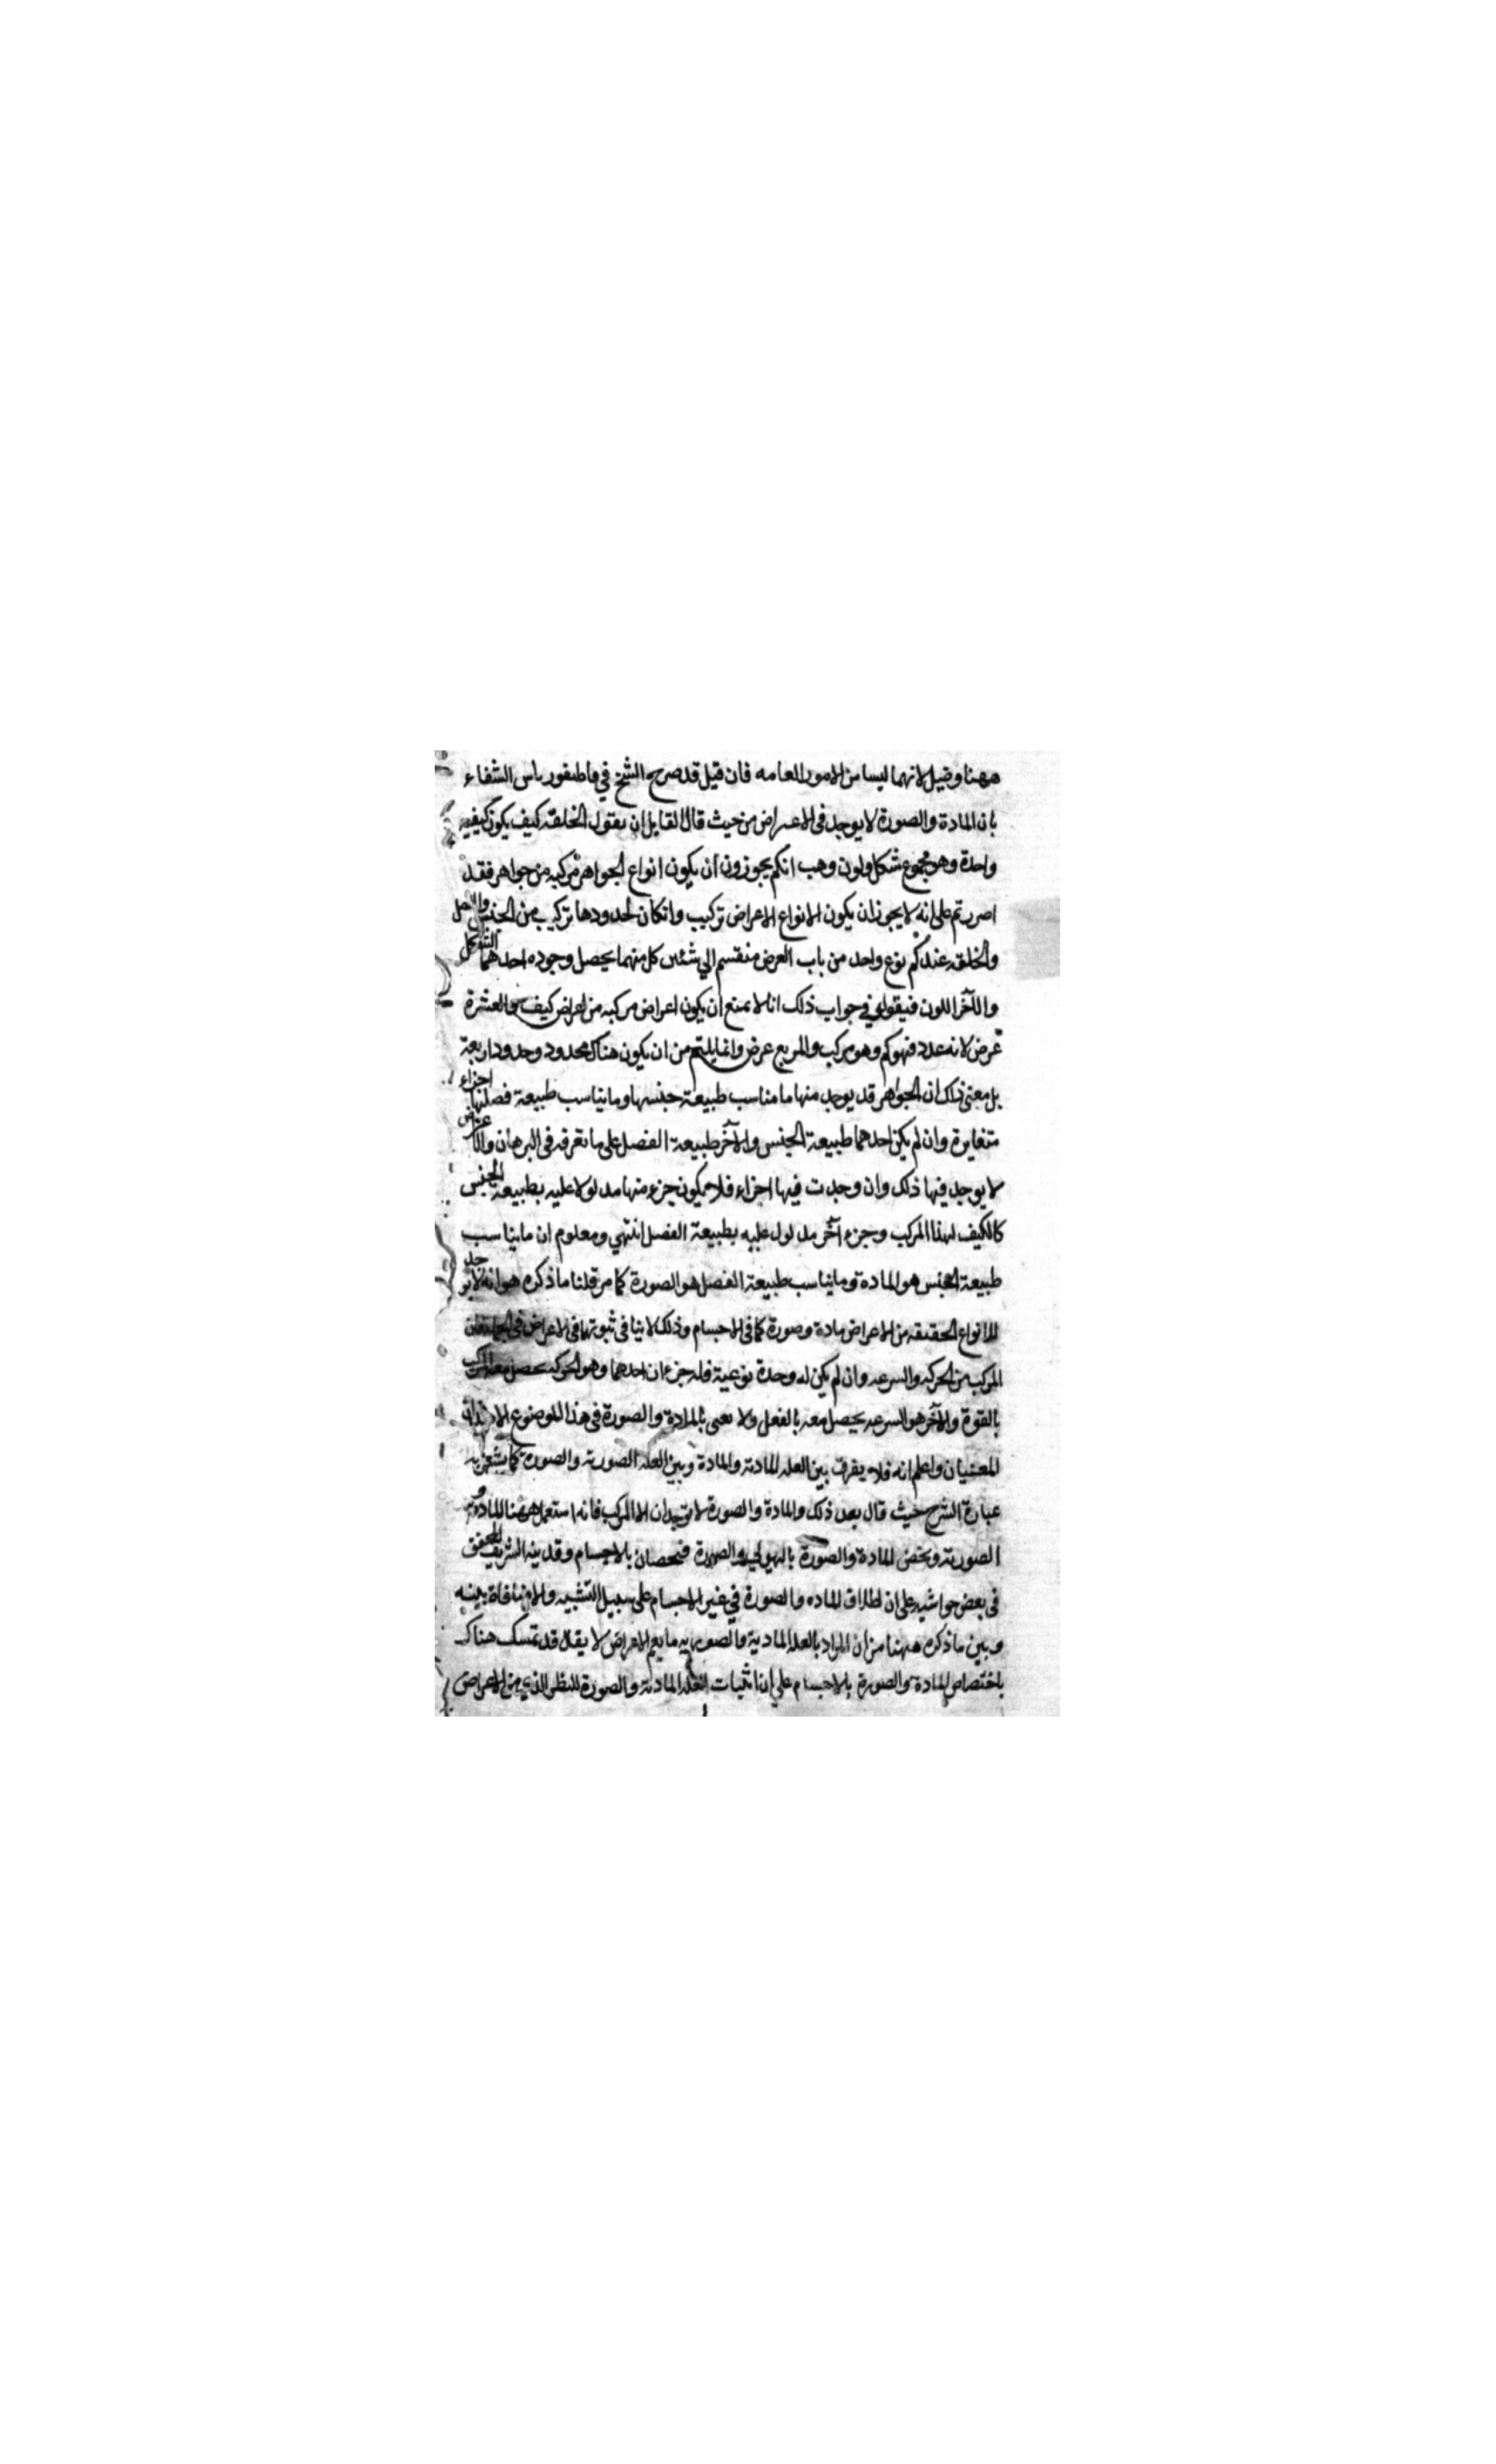 ههنا وقيل لانهما ليسا من الامور العامه فان قيل قد صرح الشيخ في قاطيغورياس الشفاء
بان المادة والصورة لا يوجد فى الاعراض من حيث قال القايل ان يقول الخلقة كيف يكون كيفيه
واحدة وهو مجموع شكل ولون وهب انكم يجوزون ان يكون انواع الجواهر مركبه من جواهر فقد
اصررتم على انه لا يجوز ان يكون الانواع الاعراض تركيب وانكان لحدودها تركيب من الجنس والفصل
والخلقه عندكم نوع واحد من باب العرض منقسم الي شئين كل منهما يحصل وجوده احدهما الشكل
والآخر اللون فيقول في جواب ذلك انا لا نمنع ان يكون اعراض مركبه من اعراض كيف والعشرة
عرض لانه عدد فهو كم وهو مركب والمربع عرض وانما يلتئم من ان يكون هناك محدود وحدود اربعة
بل معنى ذلك ان الجواهر قد يوجد منها ما مناسب طبيعة جنسها وما يناسب طبيعة فصلها اجزاء
متغايرة وان لم يكن احدهما طبيعة الجنس والآخر طبيعة الفصل على ما تعرفه فى البرهان والاعراض
لا يوجد فيها ذلك وان وجدت فيها اجزاء فلا يكون جزء منها مدلولا عليه بطبيعة الجنس
كالكيف لهذا المركب وجزء آخر مدلول عليه بطبيعة الفصل انتهي ومعلوم ان ما يناسب
طبيعة الجنس هو المادة وما يناسب طبيعة الفصل هو الصورة كما مر قلنا ما ذكره هو انه لا يوجد
للانواع الحقيقه من الاعراض مادة وصورة كما فى الاجسام وذلك لا ينافى ثبوتهما فى الاعراض فى الجمله فان
المركب من الحركه والسرعه وان لم يكن له وحدة نوعية فله جزءان احدهما وهو الحركه يحصل معه المركب
بالقوة والآخر هو السرعه يحصل معه بالفعل ولا نعنى بالمادة والصورة فى هذا الموضوع الا هذان
المعنيان واعلم انه فلا يفرق بين العله المادية والمادة وبين العله الصورية والصورة كما يشعر به
عبارة الشرح حيث قال بعد ذلك والمادة والصورة لا توجدان الا المركب فانه استعمل ههنا المادة و
الصورية ويخص المادة والصورة بالهيولى والصورة فيخصان بالاجسام وقد نبه الشريف المحقق
فى بعض حواشيه على ان اطلاق الماده والصورة في غير الاجسام على سبيل التشبيه ولا منافاة بينه
وبين ما ذكره ههنا من ان المراد بالعله المادية والصوريه ما يعم الاعراض لا يقال قد تمسك هناك
باختصاص المادة والصورة بالاجسام على ان اثبات العله المادية والصورة للنظر الذي من الاعراض